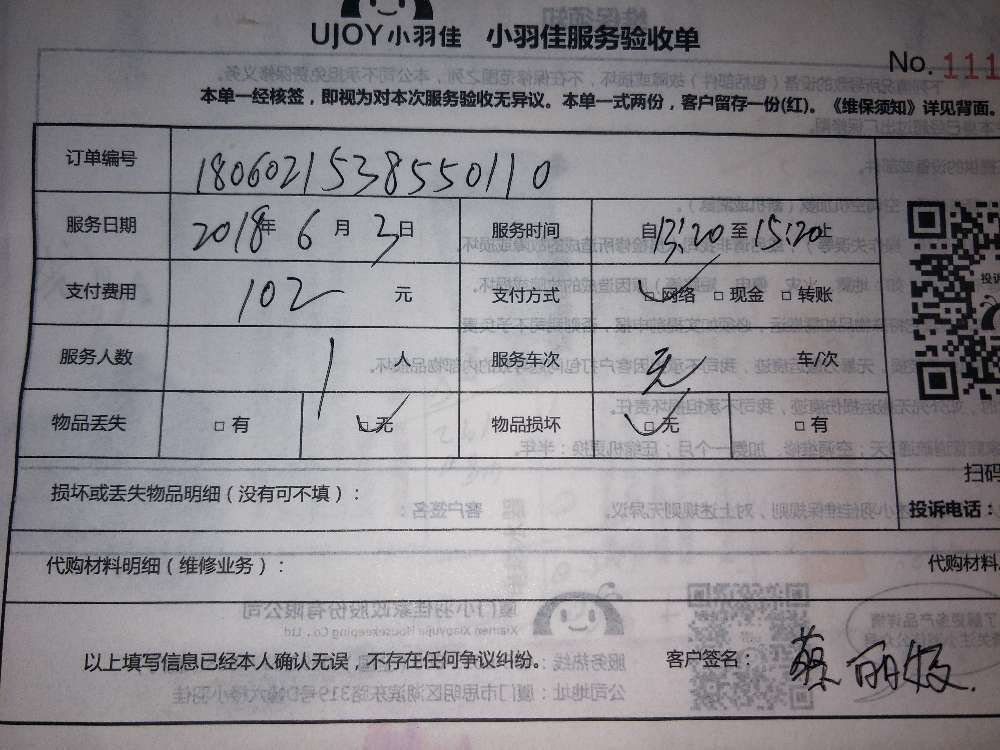 UJOY小羽佳 小羽佳服务验收单
No. 111
本单一经核签，即视为对本次服务验收无异议。本单一式两份，客户留存一份(红)。《维保须知》详见背面。
订单编号 180602153855 0110
服务日期 2018年 6 月 3 日 服务时间 自13:20至15:20止
支付费用 102 元 支付方式 □网络 □现金 □转账
服务人数 1 人 服务车次 无 车/次
物品丢失 □有 □无 物品损坏 □无 □有
损坏或丢失物品明细（没有可不填）：
扫码
投诉电话：
代购材料明细（维修业务）：
代购材料
以上填写信息已经本人确认无误，不存在任何争议纠纷。 客户签名： 蔡丽